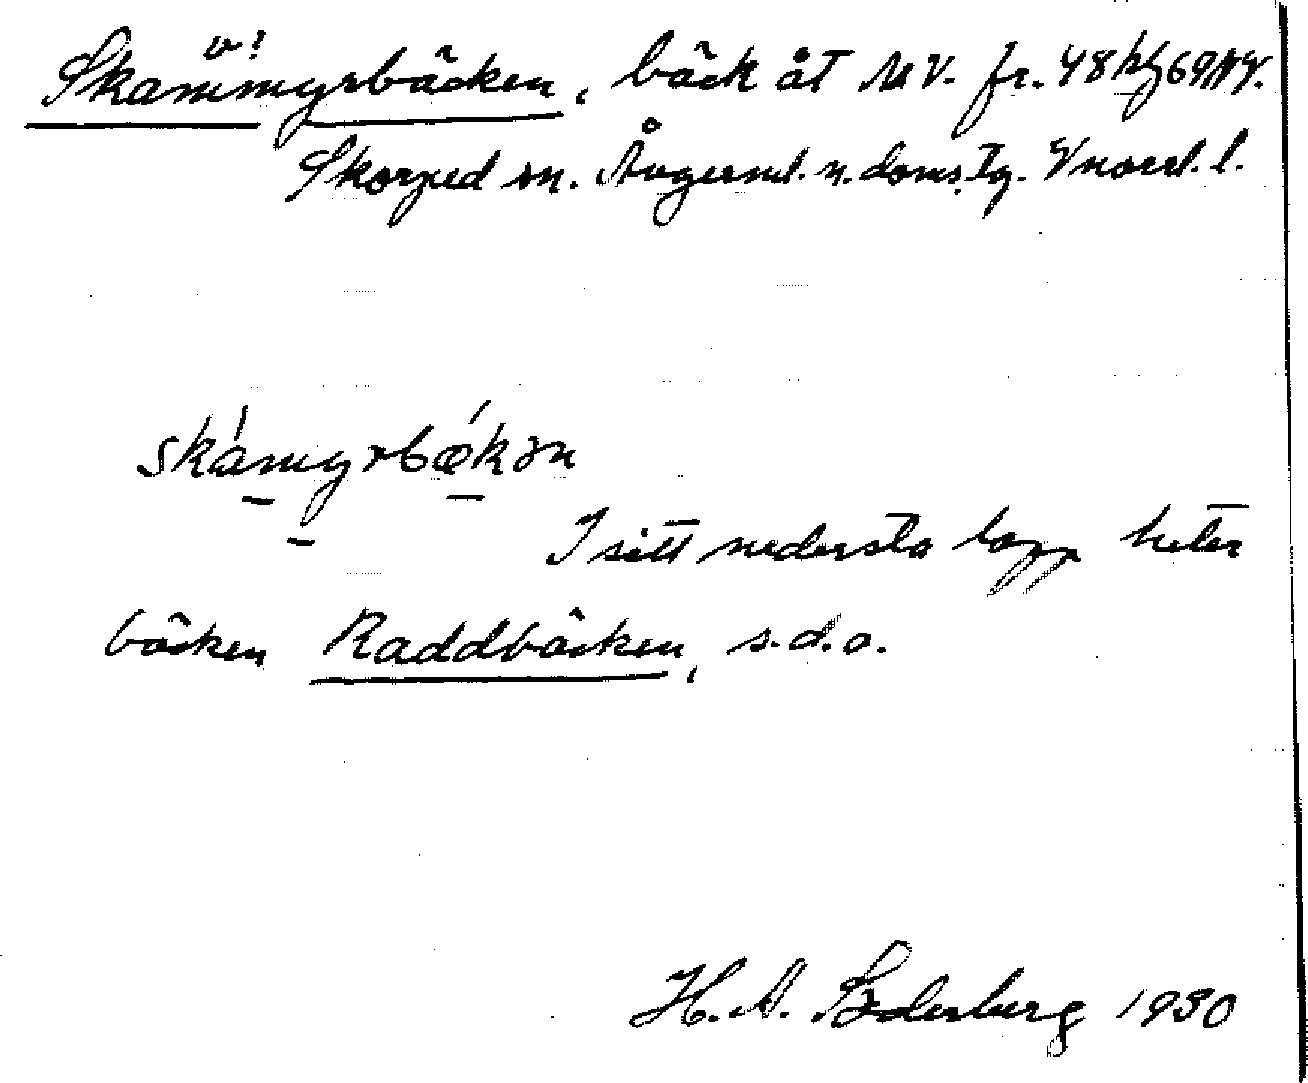 Skammyrbäcken, bäck åt NV. fr. 48 hg 69 NV.
Skorped sn. Ångerml. n. doms. tg. Vnorrl. l.
skámyrbækən
I sitt nedersta lopp heter
bäcken Raddbäcken, s.d.o.
H. A. Söderberg 1930